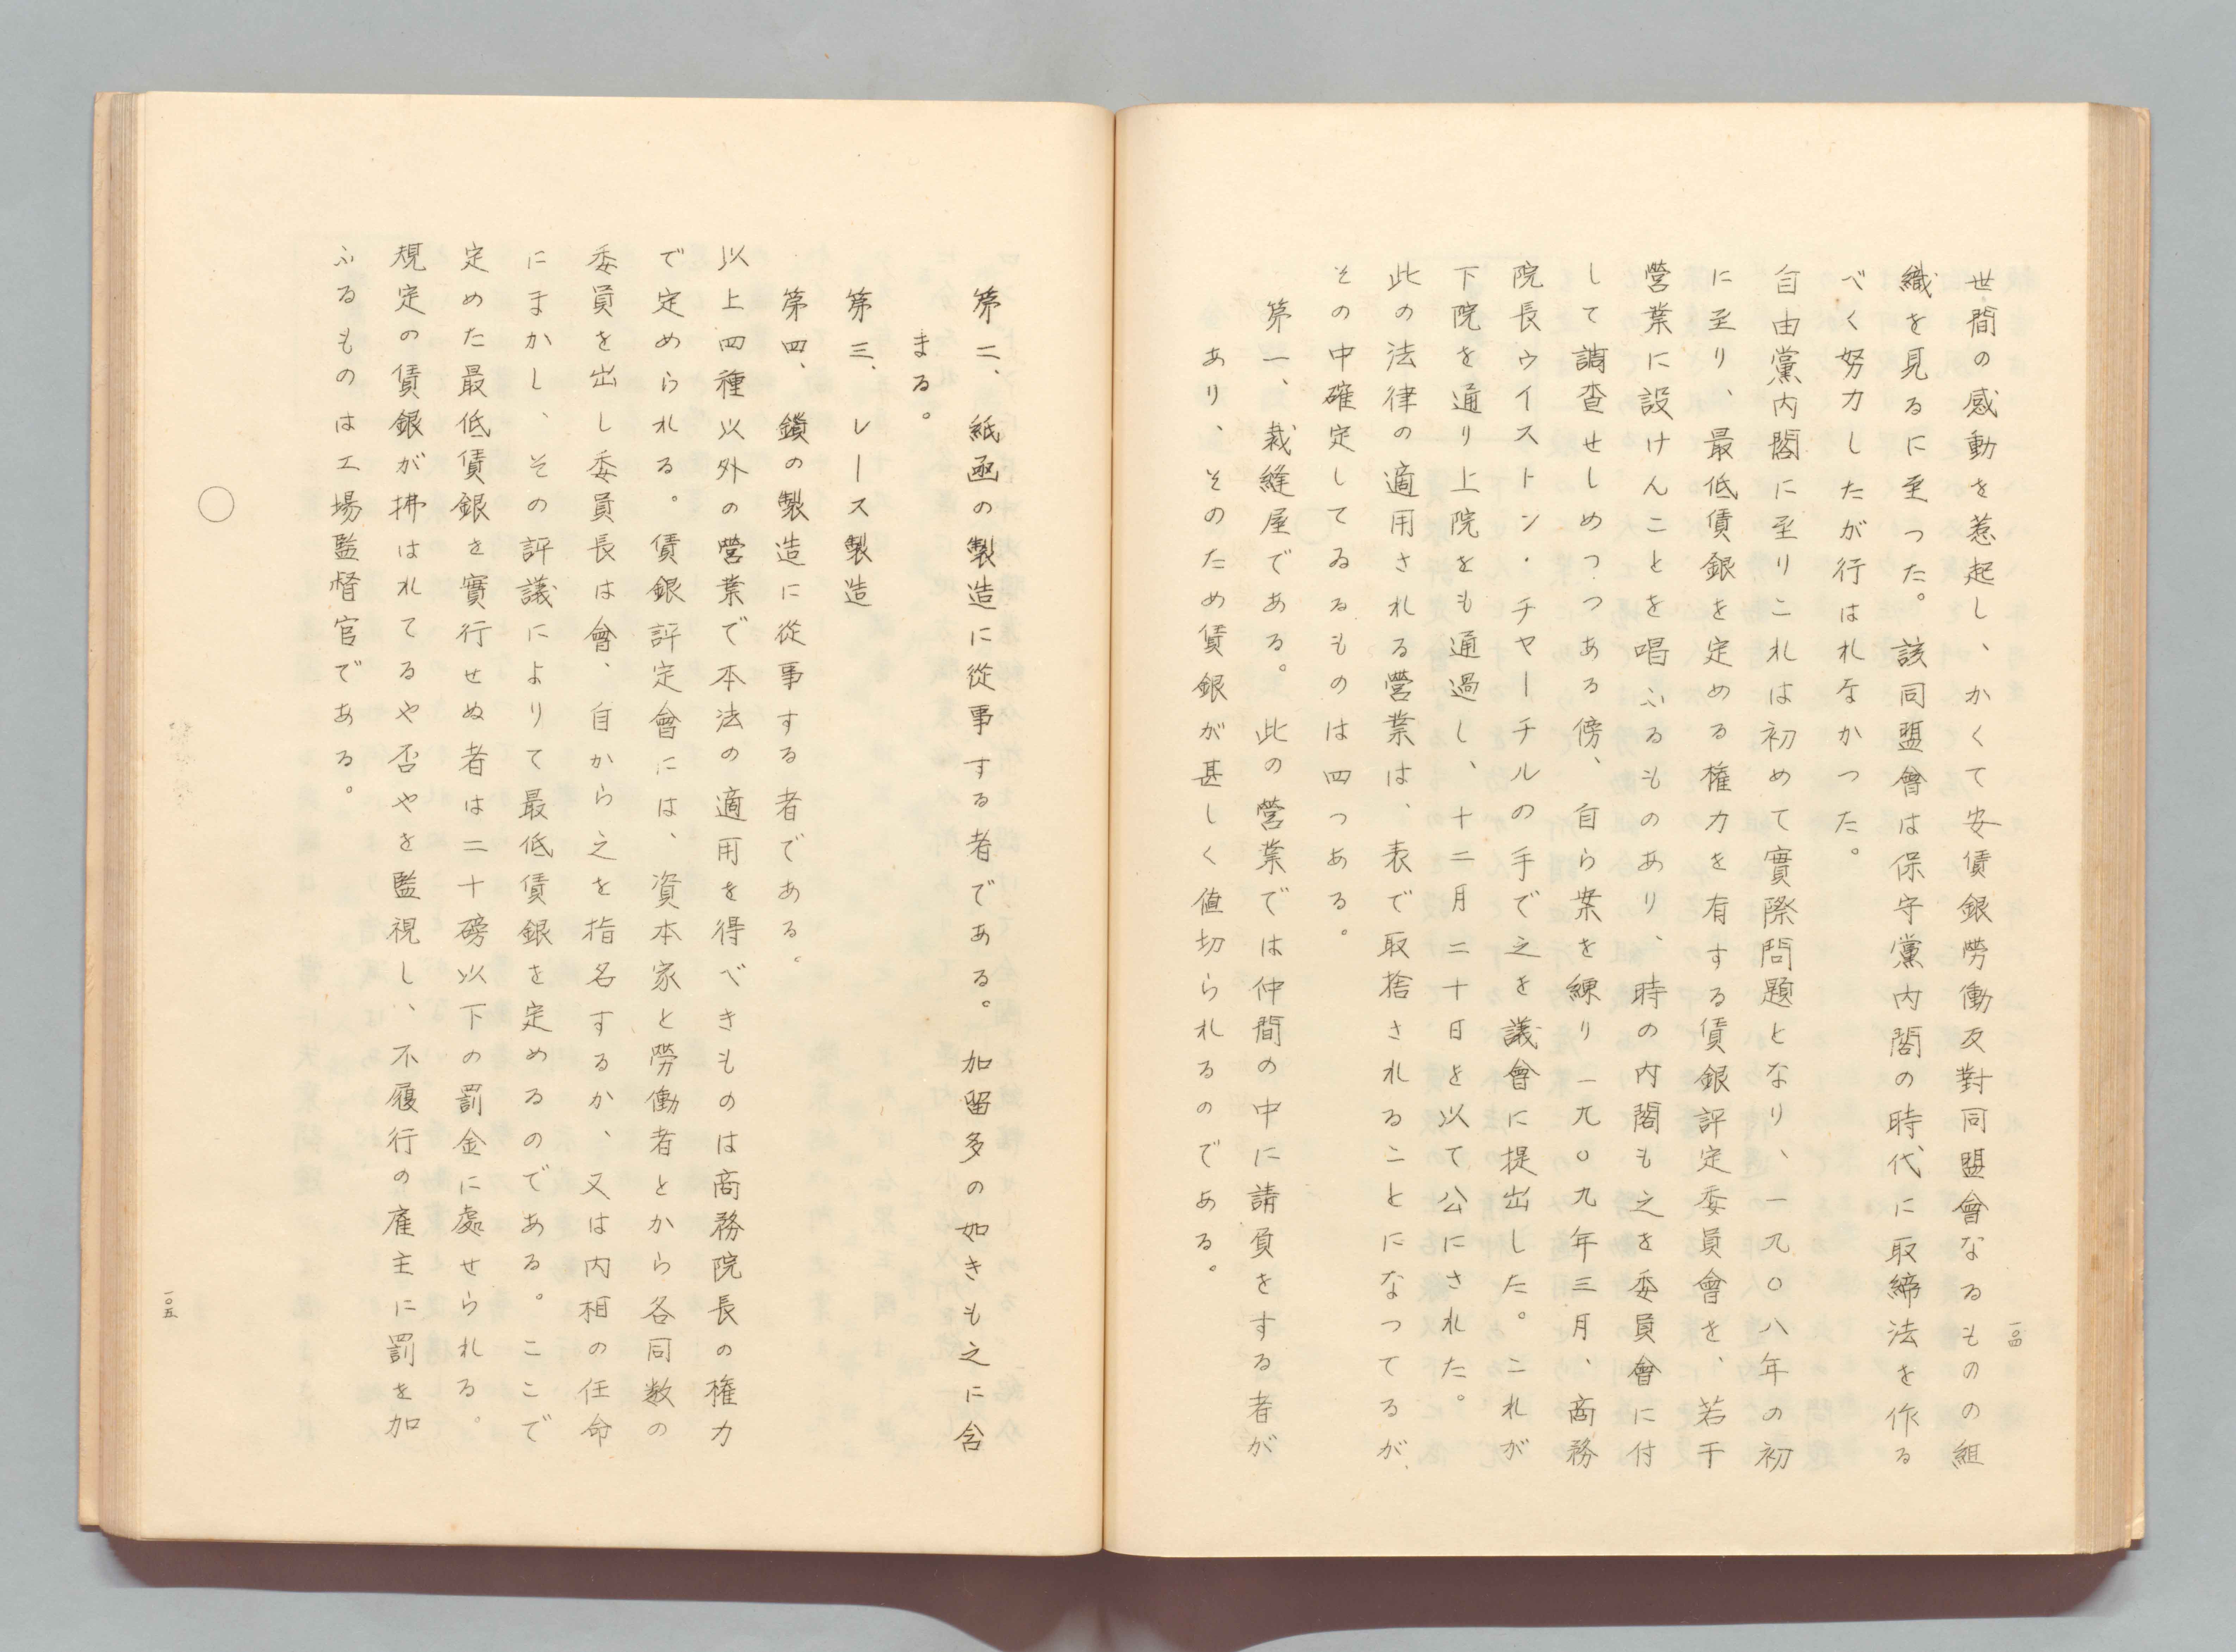 世間の感動を惹起し、かくて安賃銀勞働反對同盟會なるものの組
織を見るに至つた。該同盟會は保守黨内閣の時代に取締法を作る
べく努力したが行はれなかつた。
自由黨内閣に至りこれは初めて實際問題となり、一九〇八年の初
に至り、最低賃銀を定める権力を有する賃銀評定委員會を、若干
營業に設けんことを唱ふるものあり、時の内閣も之を委員會に付
して調査せしめつつある傍、自ら案を練り一九〇九年三月、商務
院長ウイストン・チヤーチルの手で之を議會に提出した。これが
下院を通り上院をも通過し、十二月二十日を以て公にされた。
此の法律の適用される營業は、表で取捨されることになつてるが、
その中確定してゐるものは四つある。
第一、裁縫屋である。此の營業では仲間の中に請負をする者が
あり、そのため賃銀が甚しく値切られるのである。
一〇四
第二、紙函の製造に從事する者である。加留多の如きも之に含
まる。
第三、レース製造
第四、鎖の製造に從事する者である。
以上四種以外の營業で本法の適用を得べきものは商務院長の権力
で定められる。賃銀評定會には、資本家と勞働者とから各同数の
委員を出し委員長は會、自から之を指名するか、又は内相の任命
にまかし、その評議によりて最低賃銀を定めるのである。ここで
定めた最低賃銀を實行せぬ者は二十磅以下の罰金に處せられる。
規定の賃銀が拂はれてるや否やを監視し、不履行の雇主に罰を加
ふるものは工場監督官である。
一〇五